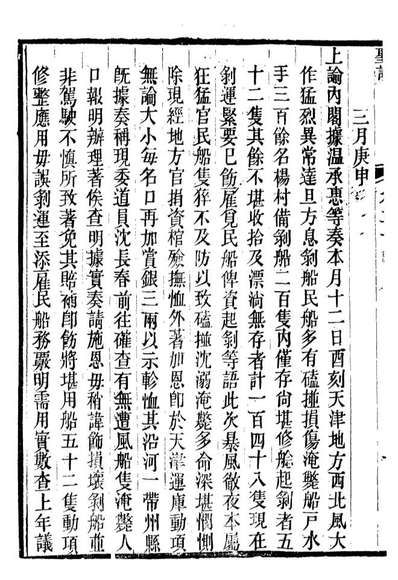 聖訓
三月庚申
上諭內閣據溫承惠等奏本月十二日酉刻天津地方西北風大
作猛烈異常達旦方息剝船民船多有磕撞損傷淹斃船戶水
手三百餘名楊村備剝船二百隻內僅存尚堪修艌起剝者五
十二隻其餘不堪收拾及漂淌無存者計一百四十八隻現在
剝運緊要已飭雇覓民船俾資起剝等語此次暴風徹夜本屬
狂猛官民船隻猝不及防以致磕撞沈溺淹斃多命深堪憫惻
除現經地方官捐資棺殮撫恤外著加恩卽於天津運庫動項
無論大小每名口再加賞銀三兩以示軫恤其沿河一帶州縣
旣據奏稱現委道員沈長春前往確查有無遭風船隻淹斃人
口報明辦理著俟查明據實奏請施恩毋稍諱飾損壞剝船並
非駕駛不慎所致著免其賠補卽飭將堪用船五十二隻動項
修整應用毋誤剝運至添雇民船務嚴明需用實數查上年議